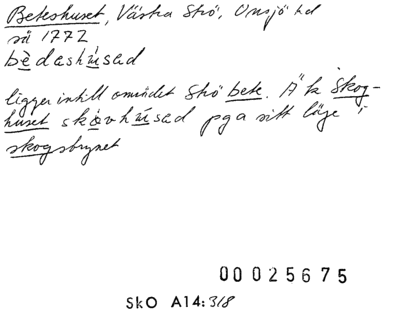 Beteshuset, Västra Strö, Onsjö hd
så 1772
bèdashúsad
ligger intill området Strö bete. Äk Skog-
huset skóvhúsad pga sitt läge i
skogsbrynet
00025675
SkO A14:318